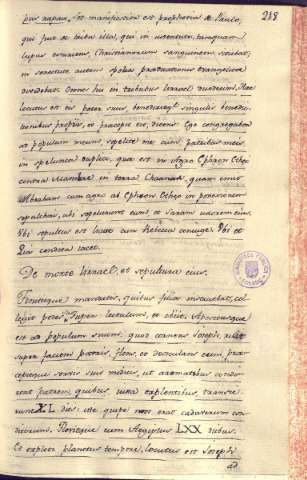 218
pus rapax, et manifestior est prophetia de Paulo,
qui fuit de tribu illa, qui in juventute tamquam
lupus crudelis, Christianorum sanguinem sitiebat,
in senectute autem spolia praedicationis evangelica
dividebat. Omnes hi in tribubus Israel duodecim. Haec
locutus est eis pater suus benedixitque singulis benedic-
tionibus propriis, et praecepit eis, dicens: Ego congregabor
ad populum meum: sepelite me cum patribus meis
in spelunca duplici, quae est in Agro Ephron Hethei
contra Mambre in terra Chanaan, quam emit
Abraham cum agro ab Ephron Hetheo in possessionem
sepulchri, ibi sepelierunt eum, et Saram uxorem eius.
Ibi sepultus est Isaac cum Rebecca coniuge. Ibi et
Lia condita iacet.
De morte Israel, et sepultura eius.
Finitisque mandatis, quibus filios instruebat, col-
legit pedes super lectulum, et obiit. Appositusque
est ad populum suum, quod cernens Joseph, ruit
supra faciem patris, flens, et deosculans eum, prae-
cepitque servis suis medicis, ut aromatibus condi-
rent patrem, quibus iussa explentibus, transie-
runt XL dies: iste quippe mos erat cadaverum con-
ditorum. Flevitque eum Aegyptus LXX diebus.
Et expleto planctus tempore, locutus est Joseph
ad